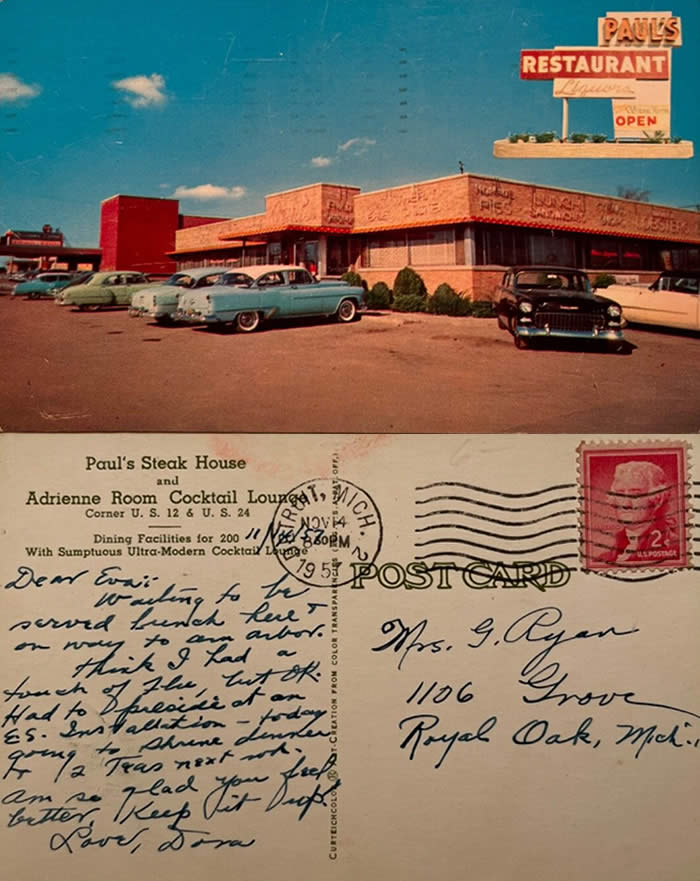 PAUL'S
RESTAURANT
Liquors
OPEN
Paul's Steak House
and
Adrienne Room Cocktail Lounge
Corner U. S. 12 & U. S. 24
Dining Facilities for 200
With Sumptuous Ultra-Modern Cocktail Lounge
DETROIT, MICH. 2
NOV 14
PM
2¢
U.S. POSTAGE
POST CARD
Dear Eva:
Waiting to be
served lunch here
on way to ann arbor.
think I had a
touch of Flu, but OK.
Had to preside at an
E.S. Installation - today
going to Shrine dinner
Teas next wk.
am so glad you feel
better, Keep it up.
Love, Dora
Mrs. G. Ryan
1106 Grove
Royal Oak, Mich.
CURTEICHCOLOR ® ART-CREATION FROM COLOR TRANSPARENCIES (REG. U.S. PAT. OFF.)